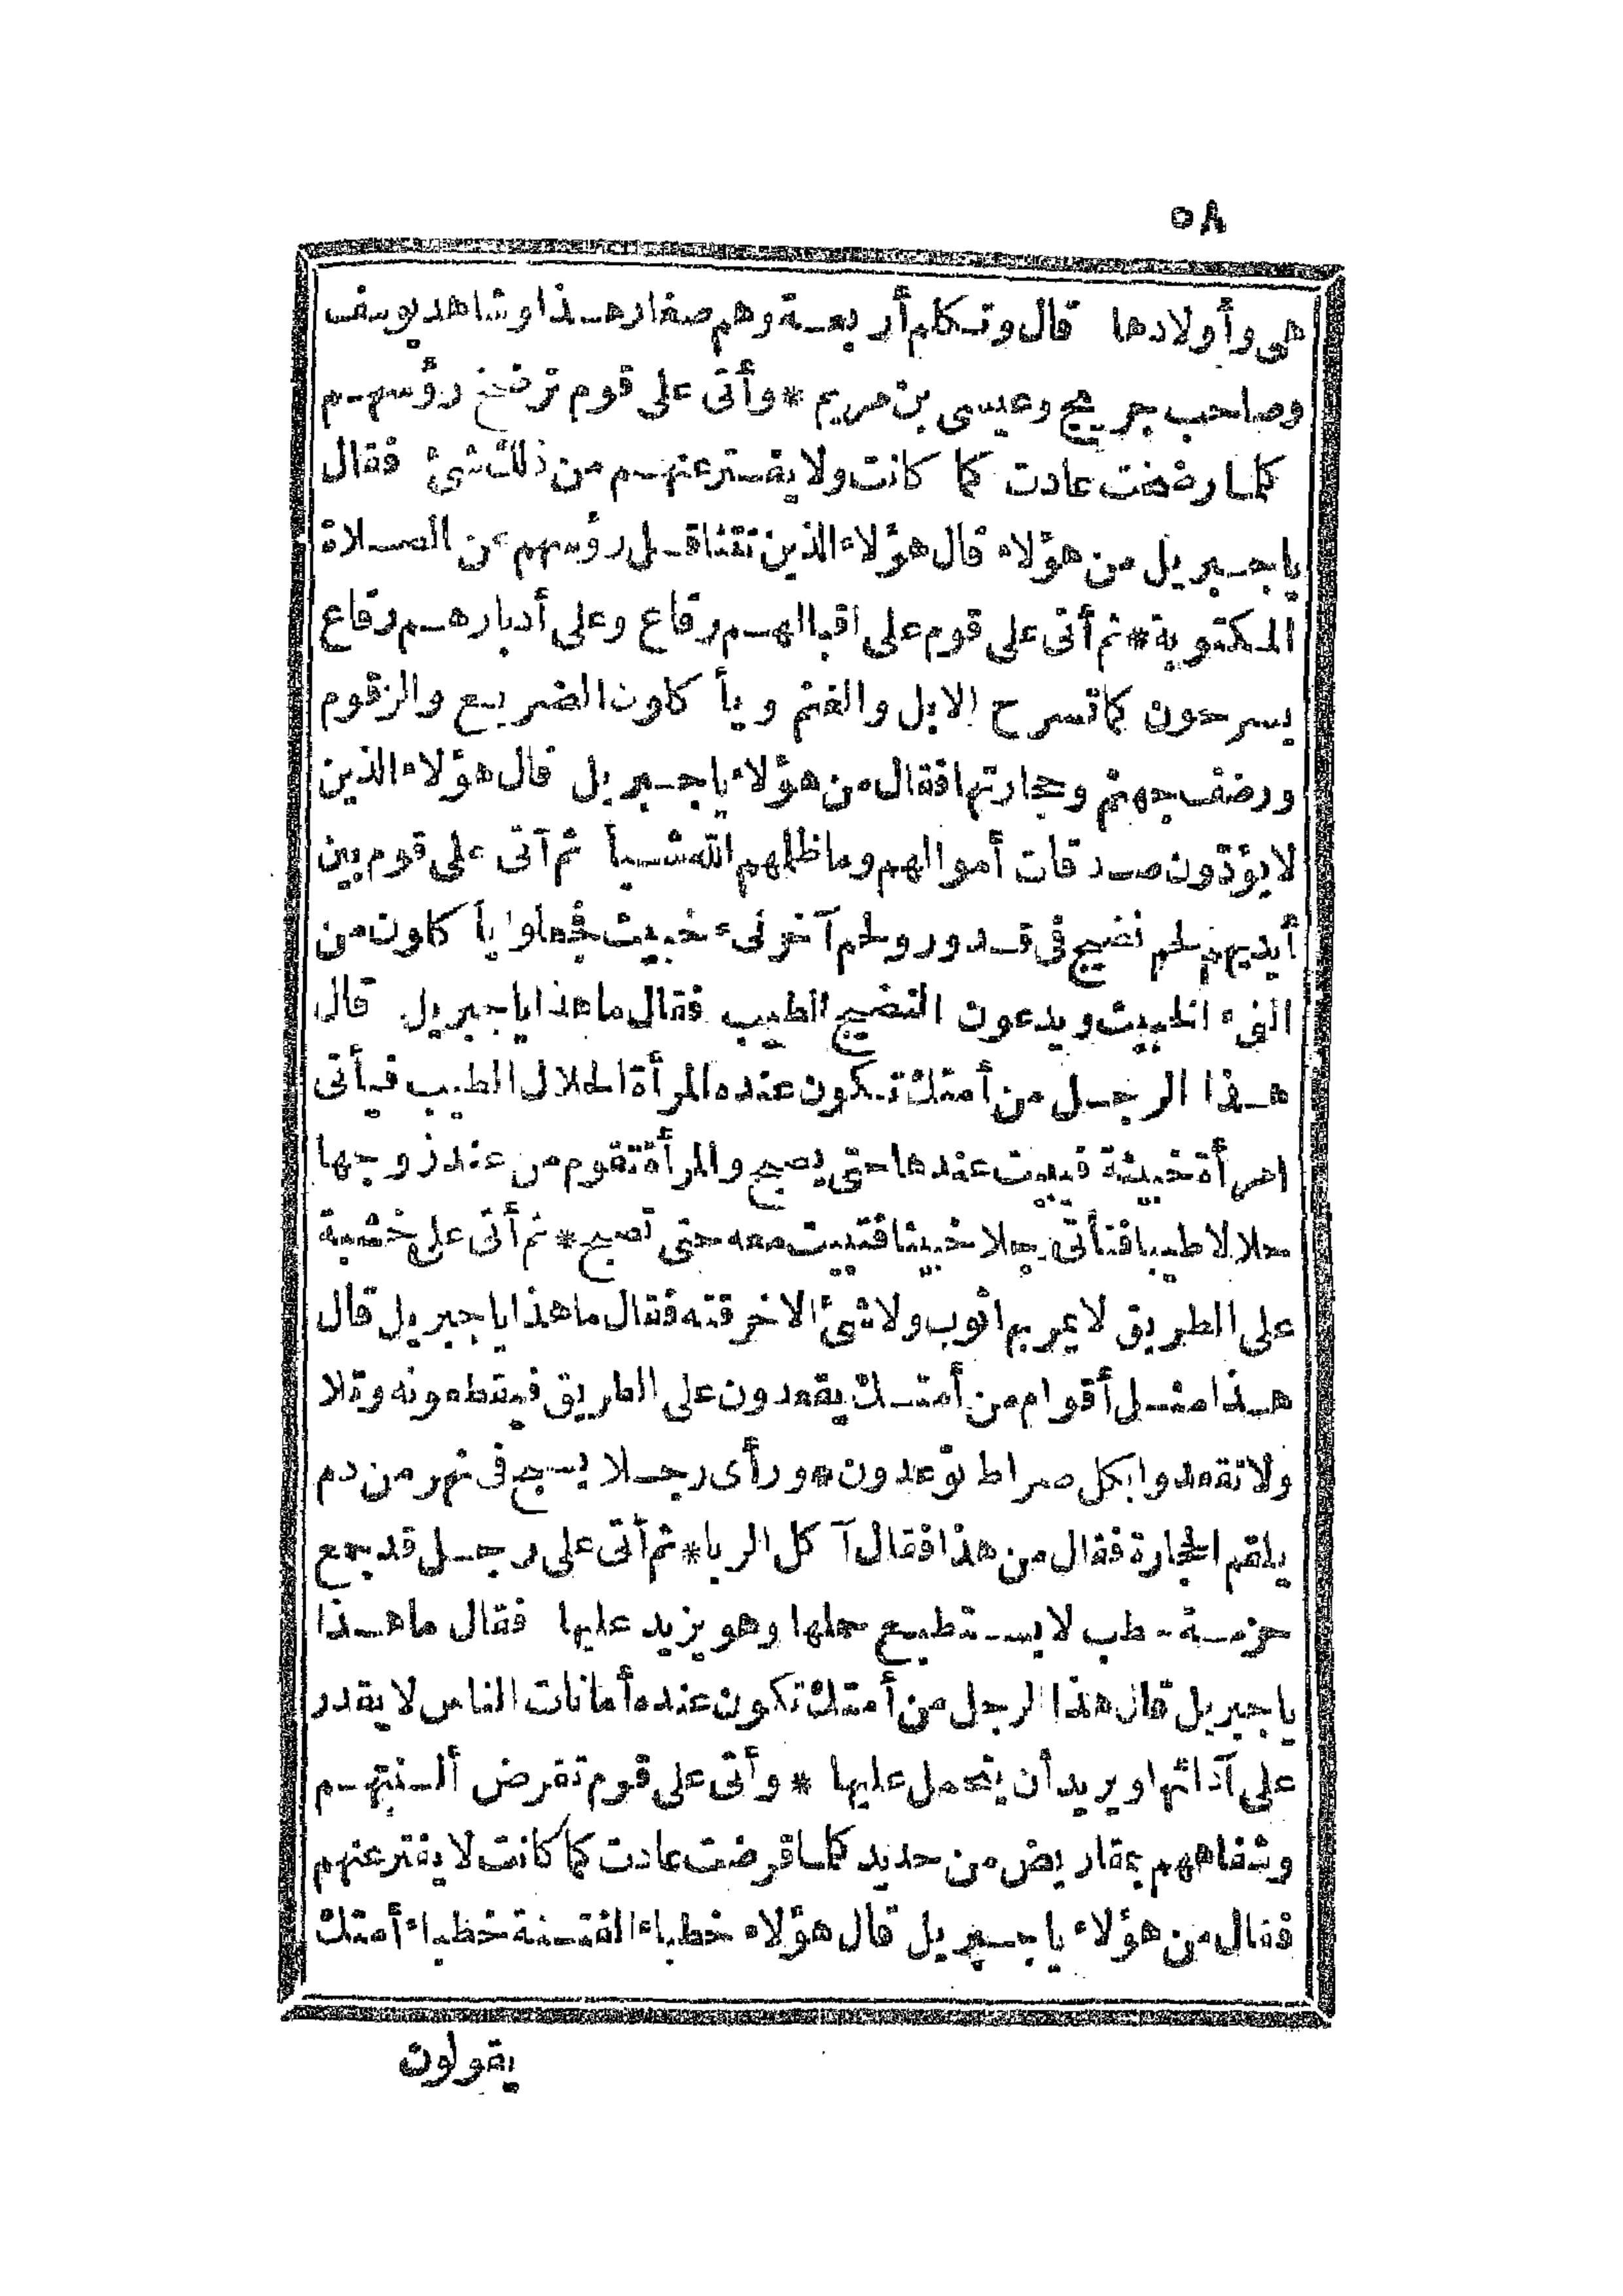 ٥٨
هى وأولادها قال وتكلم أربعة وهم صغار هذا وشاهد يوسف
وصاحب جريج وعيسى بن مريم * وأتى على قوم ترضخ رؤسهم
كلما رضخت عادت كما كانت ولا يفتر عنهم من ذلك شئ فقال
ياجبريل من هؤلاء قال هؤلاء الذين تتثاقل رؤسهم عن الصلاة
المكتوبة * ثم أتى على قوم على اقبالهم رقاع وعلى أدبارهم رقاع
يسرحون كما تسرح الابل والغنم ويأكلون الضريع والزقوم
ورضف جهنم وحجارتها فقال من هؤلاء ياجبريل قال هؤلاء الذين
لا يؤدّون صدقات أموالهم وما ظلمهم الله شيأ ثم أتى على قوم بين
أيديهم لحم نضيج فى قدور ولحم آخر نىء خبيث فجعلوا يأكلون من
النىء الخبيث ويدعون النضيج الطيب فقال ما هذا ياجبريل قال
هذا الرجل من أمتك تكون عنده المرأة الحلال الطيب فيأتى
امرأة خبيثة فيبيت عندها حتى يصبح والمرأة تقوم من عند زوجها
حلالا طيبا فتأتى رجلا خبيثا فتبيت معه حتى تصبح * ثم أتى على خشبة
على الطريق لا يمر بها ثوب ولا شئ الا خرقته فقال ما هذا ياجبريل قال
هذا مثل أقوام من أمتك يقعدون على الطريق فيقطعونه وتلا
ولا تقعدوا بكل صراط توعدون * ورأى رجلا يسبح فى نهر من دم
يلقم الحجارة فقال من هذا فقال آكل الربا * ثم أتى على رجل قد جمع
حزمة حطب لا يستطيع حملها وهو يزيد عليها فقال ما هذا
ياجبريل قال هذا الرجل من أمتك تكون عنده أمانات الناس لا يقدر
على آدائها ويريد أن يتحمل عليها * وأتى على قوم تقرض ألسنتهم
وشفاههم بمقاريض من حديد كلما قرضت عادت كما كانت لا يفتر عنهم
فقال من هؤلاء ياجبريل قال هؤلاء خطباء الفتنة خطباء أمتك
يقولون